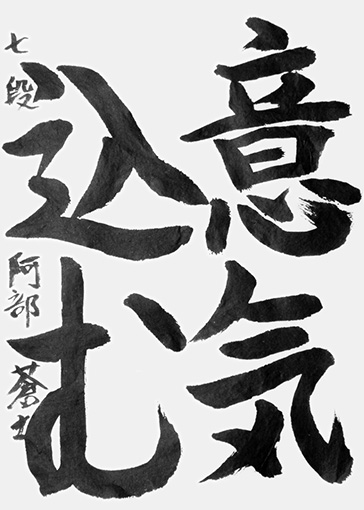 意気
込む
七段 阿部 蒼士